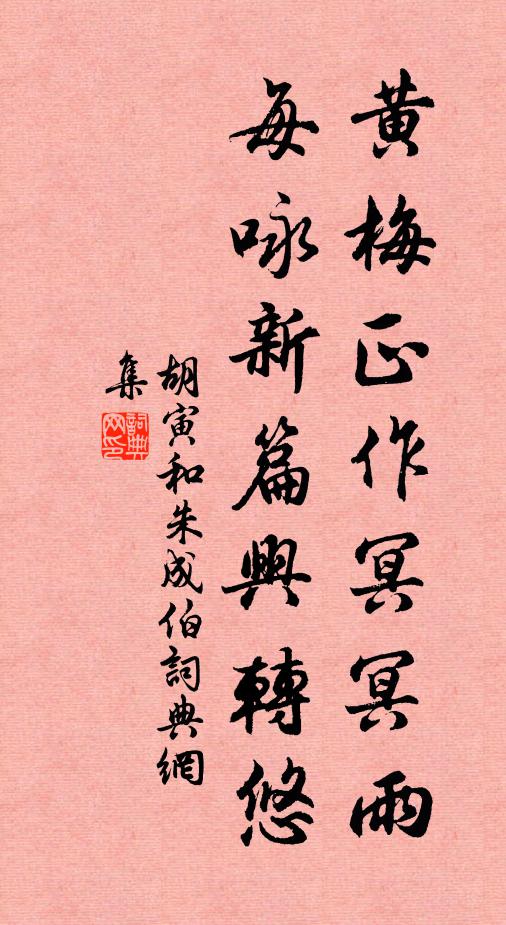 黄梅正作冥冥雨
每咏新篇興轉悠
胡寅和朱成伯詞典網
集
詞典网印